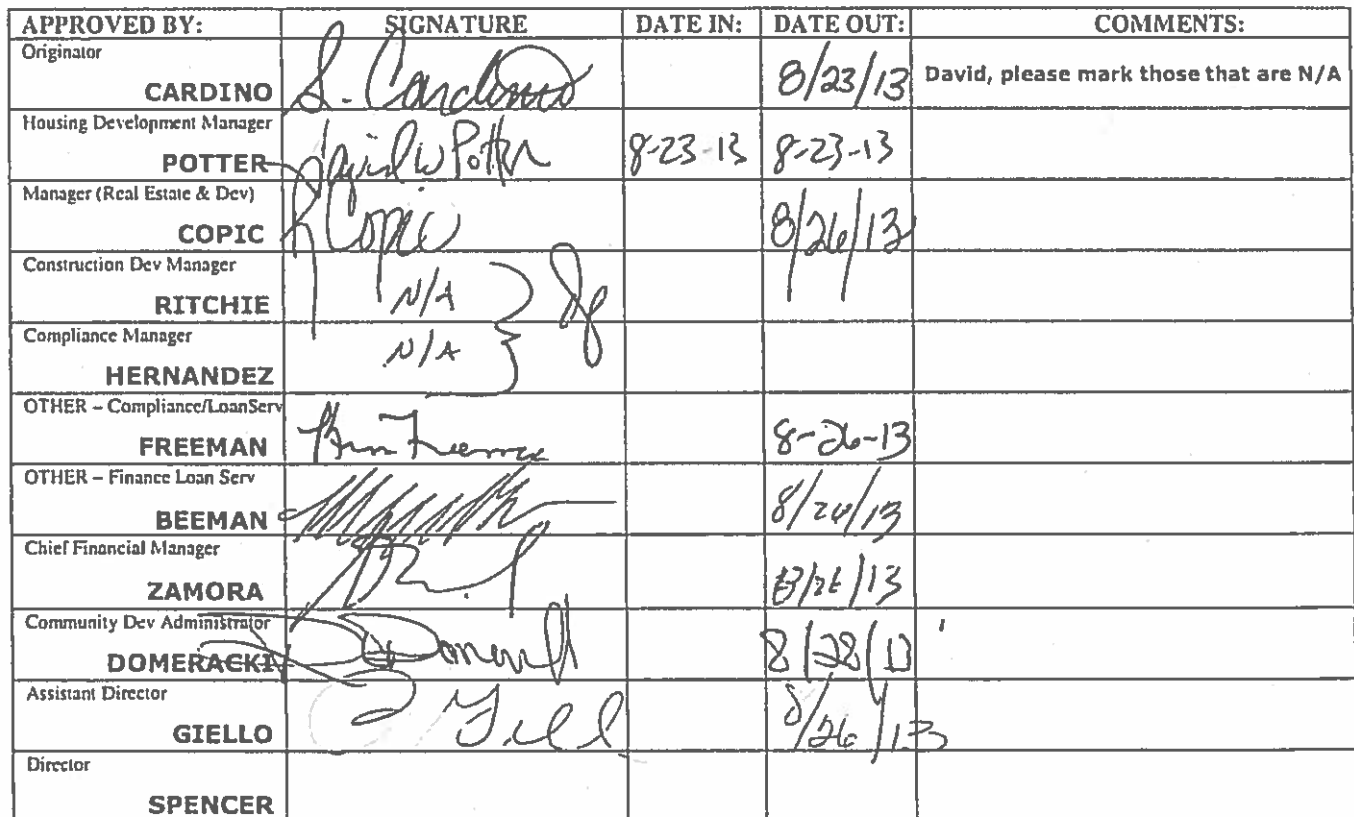 APPROVED BY: SIGNATURE DATE IN: DATE OUT: COMMENTS:
Originator
CARDINO S. Cardino 8/23/13 David, please mark those that are N/A
Housing Development Manager
POTTER David W Potter 8-23-13 8-23-13
Manager (Real Estate & Dev)
COPIC R Copic 8/26/13
Construction Dev Manager
RITCHIE N/A
Compliance Manager
N/A
HERNANDEZ
OTHER – Compliance/LoanServ
FREEMAN Freeman 8-26-13
OTHER – Finance Loan Serv
BEEMAN 8/26/13
Chief Financial Manager
ZAMORA 8/26/13
Community Dev Administrator
DOMERACKI 8/28/13
Assistant Director
GIELLO 8/26/13
Director
SPENCER